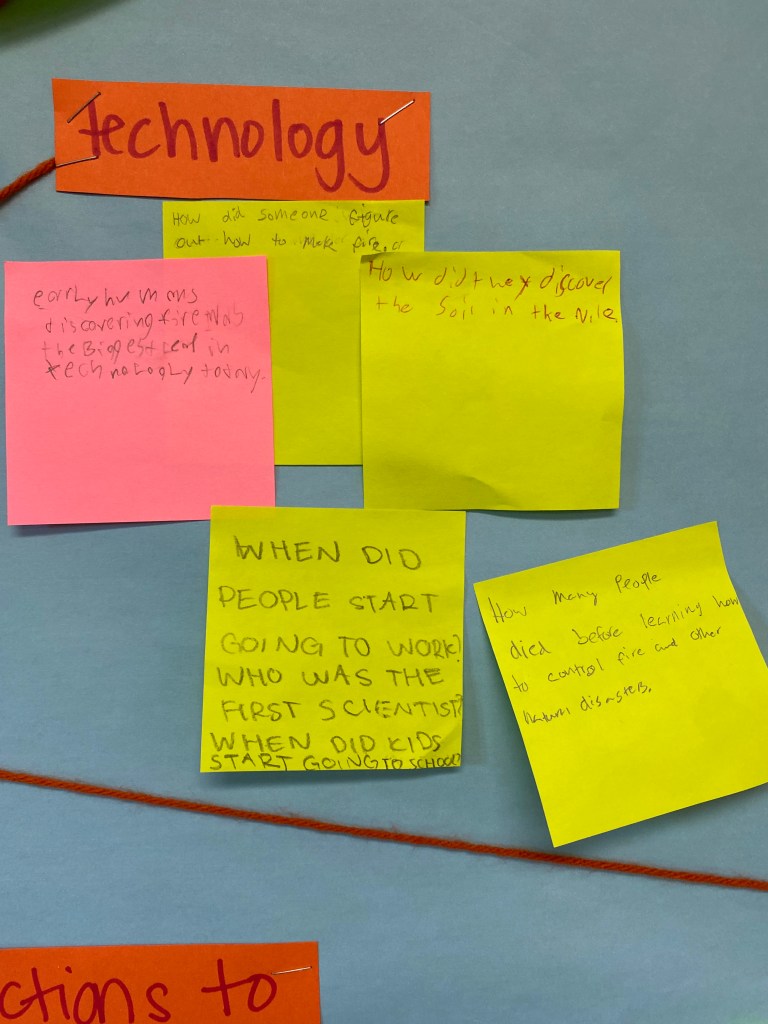 technology
How did someone figure
out how to make fire, or
early humans
discovering fire was
the Biggest Leap in
technologly today.
How did they discover
the soil in the Nile
WHEN DID
PEOPLE START
GOING TO WORK?
WHO WAS THE
FIRST SCIENTIST?
WHEN DID KIDS
START GOING TO SCHOOL
How many people
died before learning how
to control fire and other
natural disasters.
ctions to